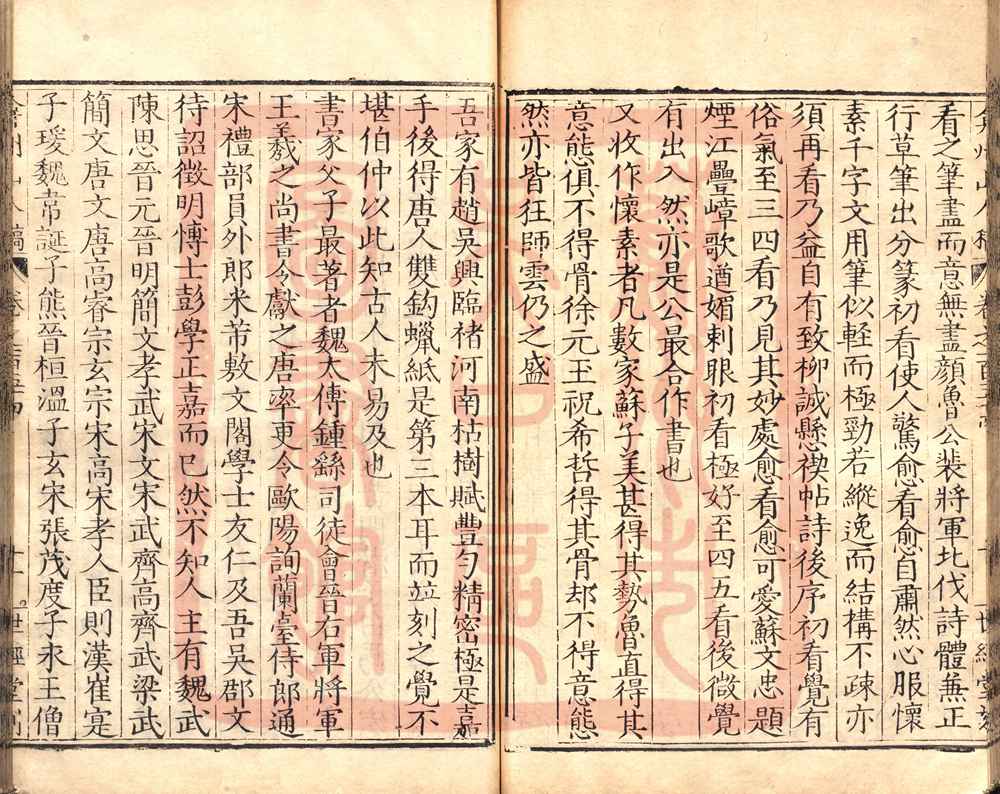 看之筆盡而意無盡顏魯公裴將軍北伐詩體兼正
行草筆出分篆初看使人驚愈看愈自肅然心服懷
素千字文用筆似輕而極勁若縱逸而結構不疎亦
須再看乃益自有致柳誠懸禊帖詩後序初看覺有
俗氣至三四看乃見其妙處愈看愈可愛蘇文忠題
煙江疊嶂歌遒媚刺眼初看極好至四五看後微覺
有出入然亦是公最合作書也
又收作懷素者凡數家蘇子美甚得其勢魯直得其
意態俱不得骨徐元玉祝希哲得其骨却不得意態
然亦皆狂師雲仍之盛
吾家有趙吳興臨褚河南枯樹賦豐勻精密極是嘉
手後得唐人雙鈎蠟紙是第三本耳而竝刻之覺不
堪伯仲以此知古人未易及也
書家父子最著者魏太傅鍾繇司徒會晉右軍將軍
王羲之尚書令獻之唐率更令歐陽詢蘭臺侍郎通
宋禮部員外郎米芾敷文閣學士友仁及吾吳郡文
待詔徵明慱士彭學正嘉而已然不知人主有魏武
陳思晉元晉明簡文孝武宋文宋武齊高齊武梁武
簡文唐文唐高睿宗玄宗宋高宋孝人臣則漢崔寔
子瑗魏韋誕子熊晉桓溫子玄宋張茂度子永王僧